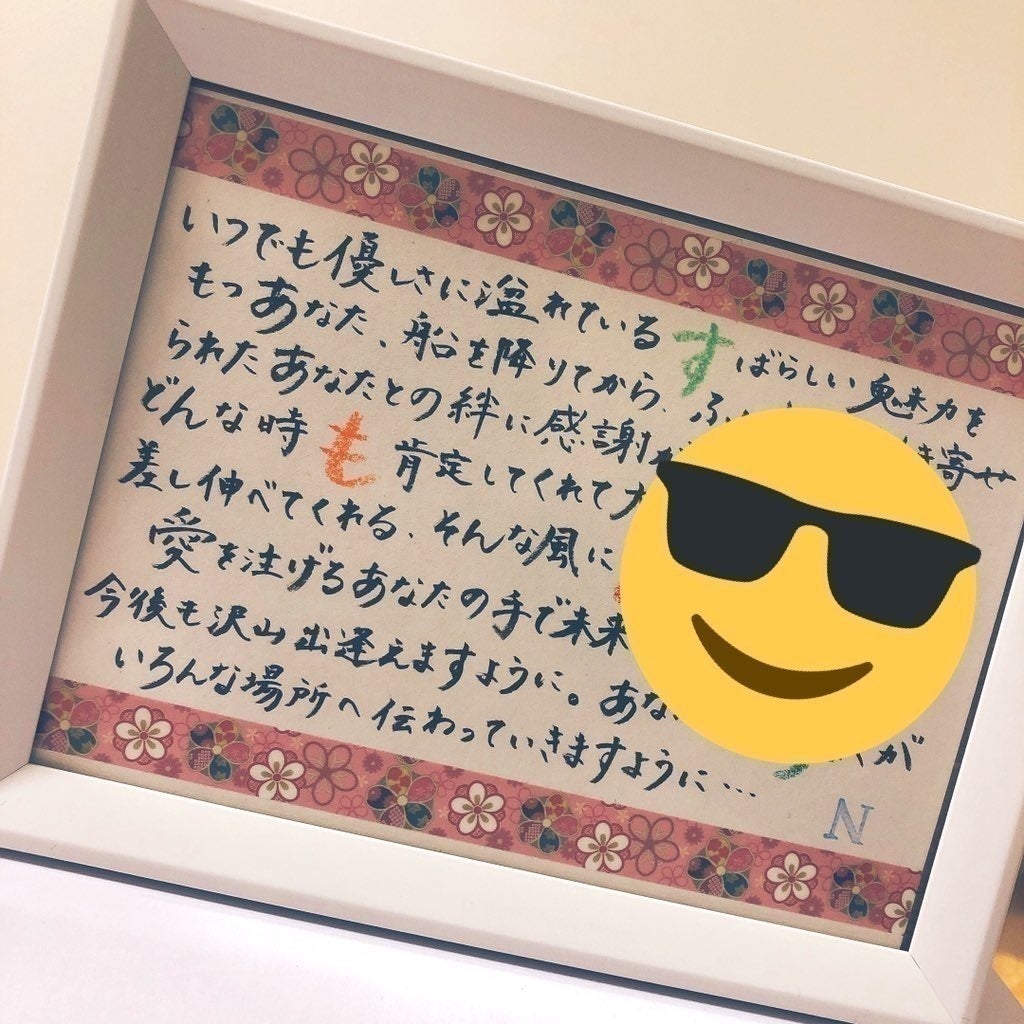 いつでも優しさに溢れているすばらしい魅力を
もつあなた、船を降りてから、ふ 寄せ
られたあなたとの絆に感謝
どんな時も肯定してくれて
差し伸べてくれる、そんな風に
愛を注げるあなたの手で未来
今後も沢山出逢えますように。あな が
いろんな場所へ伝わっていきますように…
N